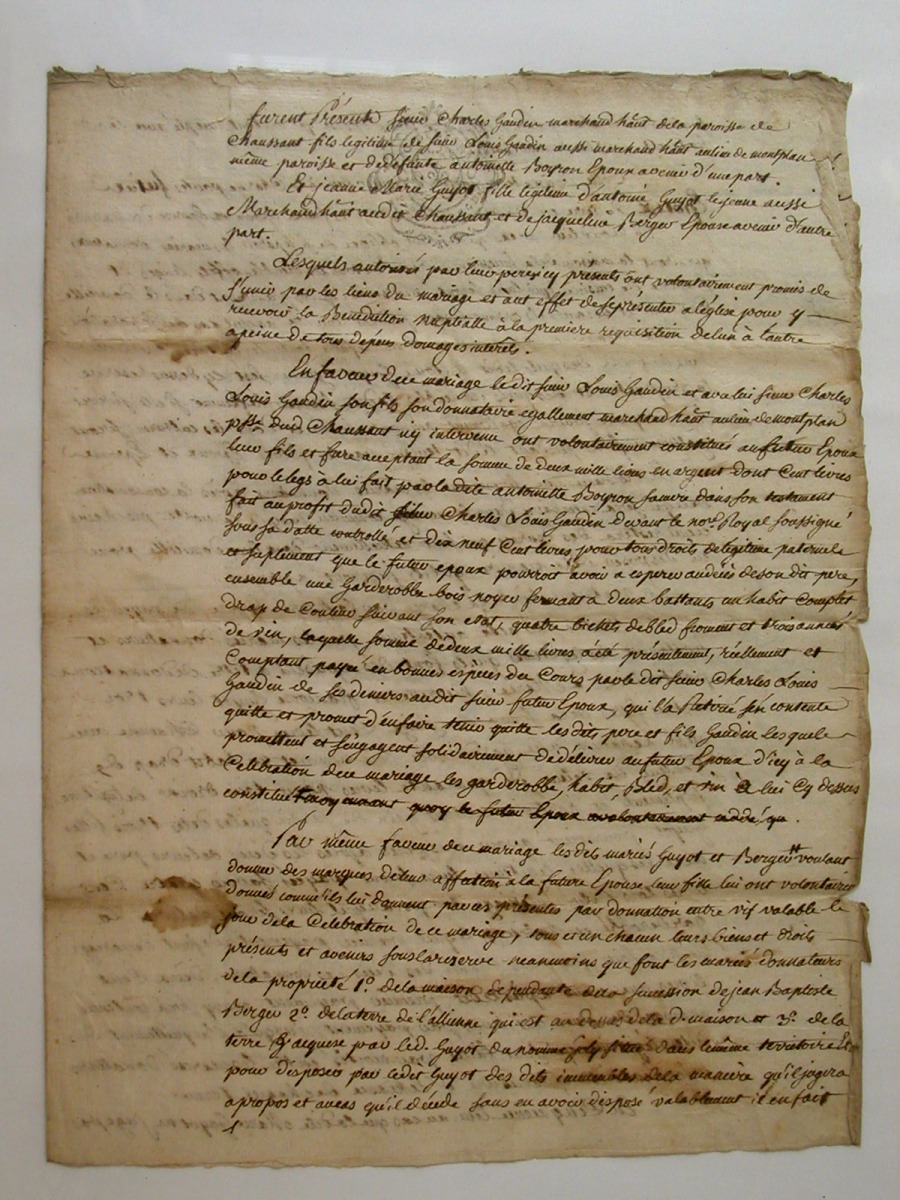 furent Présents sieur Charles Gaudin marchand habt dela paroisse de
Chaussant fils legitime de sieur Louis Gaudin aussi marchand habt aulieu de montplan
même paroisse et dedéfunte antoinette Boyron Epoux avenir d'une part.
Et jeanne Marie Guyot fille legitime d'antoine Guyot lejeune aussi
Marchand habt audit Chaussant et de jacqueline Berger Epouse avenir d'autre
part.
Lesquels autorisés par leur peres icy présents ont volontairement promis de
s'unir par les liens du mariage et à cet effet de se présenter a l'église pour y
recevoir la Bénédiction Nuptialle à la premiere requisition delun à l'autre
a peine de tous dépens domages interêts.
En faveur dece mariage ledit sieur Louis Gaudin et avec lui sieur Charles
Louis Gaudin son fils son donnataire egallement marchand habt aulieu demontplan
psse dud Chaussant icy intervenu ont volontairement constitués au futur Epoux
leur fils et frere acceptant la somme de deux mille livres en argent dont Cent livres
pour le legs a lui fait par la dite antoinette Boyron sa mere dans son testament
fait au profit dudit sieur Charles Louis Gaudin devant le nore Royal soussigné
sous sa datte controllé, et dix neuf Cent livres pour tous droits delégitime paternele
et suplément que le futur epoux pourroit avoir a esperer audeces deson dit pere,
ensemble une Garderobbe bois noyer fermant a deux battants un habit Complet
drap de Couleur suivant son etat, quatre bichets debled froment et trois années
de vin, laquelle somme dedeux mille livres a été présentement, réellement et
Comptant payée en bonnes espèces du Cours par le dit sieur Charles Louis
Gaudin de ses deniers audit sieur futur Epoux, qui l'a Retirée s'en contente
quitte et promet d'en faire tenir quitte les dits pere et fils Gaudin lesquels
promettent et s'engagent solidairement dedélivrer au futur Epoux d'icy à la
Célébration dece mariage les garderobbe, habit, bled, et vin à lui Cy dessus
constitué moyennant quoy le futur Epoux a volontairement cédé, qu.
Par même faveur dece mariage les dits mariés Guyot et Berger voulant
donner des marques deleur affection à la future Epouse leur fille lui ont volontairet
donnés comme ils lui donnent par ces présentes par donnation entre vif valable le
jour dela Célébration de ce mariage, tous et un chacun leurs biens et droits
présents et avenirs sous la reserve neanmoins que font les mariés donnateurs
dela propriété 1o. de la maison dependante dela succession dejean Baptiste
Berger 2o. delaterre de l'allienne qui est au dessus dela de. maison et 3o. de la
terre acquise par led. Guyot du nommé située dans lemême territoire Et
pour disposer par ledit Guyot des dits immeubles dela maniere qu'il jugera
apropos et aucas qu'il décéde sans en avoir disposé valablement il en fait